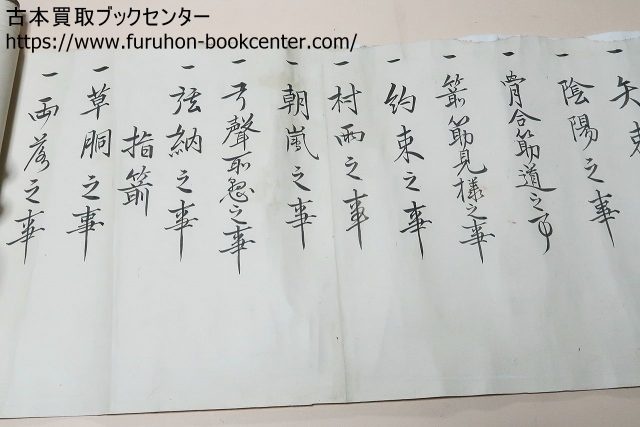 古本買取ブックセンター
https://www.furuhon-bookcenter.com/
一 矢束
一 陰陽之事
一 骨合筋道之事
一 箭筋見様之事
一 約束之事
一 村雨之事
一 朝嵐之事
一 弓聲之事
一 弦納之事
指箭
一 草胴之事
一 雨落之事